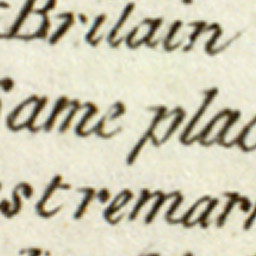 Britain
same plac
st remark